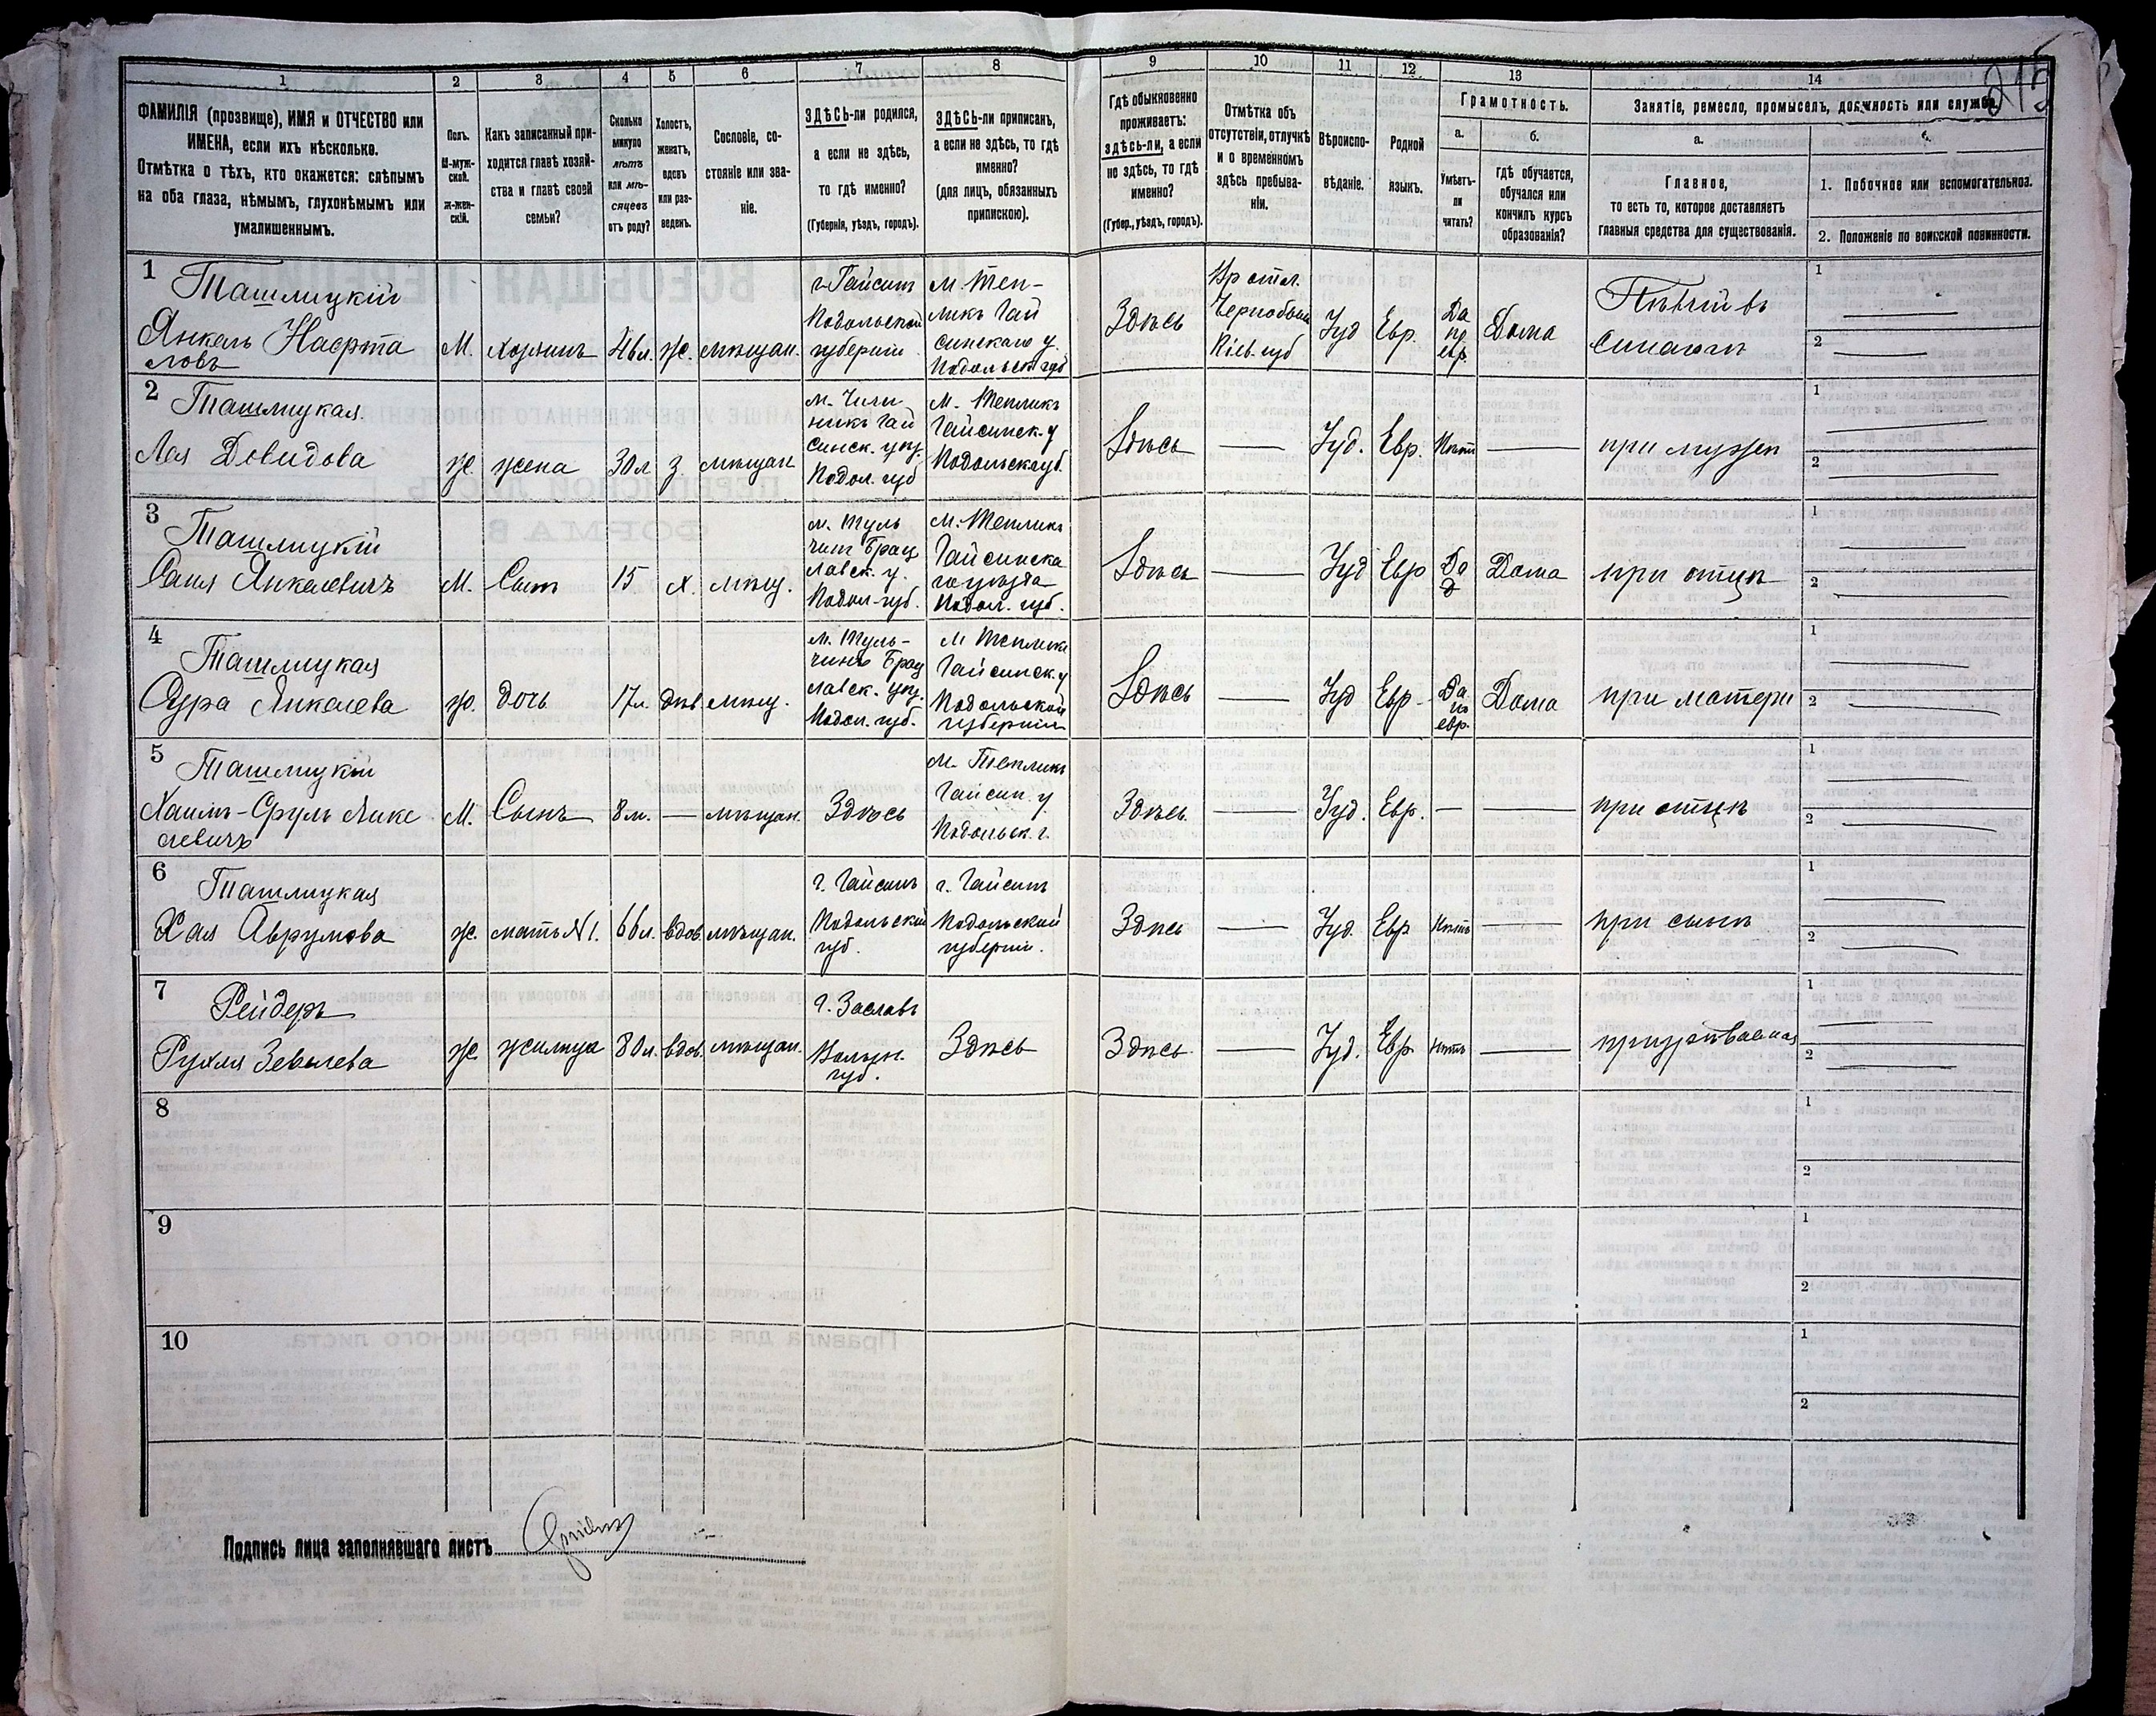 215
1
2
3
4
5
6
7
8
9
10
11
12
13
14
ФАМИЛІЯ (прозвище), ИМЯ и ОТЧЕСТВО или
ИМЕНА, если ихъ нѣсколько.
Отмѣтка о тѣхъ, кто окажется: слѣпымъ
на оба глаза, нѣмымъ, глухонѣмымъ или
умалишеннымъ.
Полъ.
М-муж-
ской.
ж-жен-
скій.
Какъ записанный при-
ходится главѣ хозяй-
ства и главѣ своей
семьи?
Сколько
минуло
лѣтъ
или мѣ-
сяцевъ
отъ роду?
Холостъ,
женатъ,
вдовъ
или раз-
веденъ.
Сословіе, со-
стояніе или зва-
ніе.
ЗДѢСЬ-ли родился,
а если не здѣсь,
то гдѣ именно?
(Губернія, уѣздъ, городъ).
ЗДѢСЬ-ли приписанъ,
а если не здѣсь, то гдѣ
именно?
(для лицъ, обязанныхъ
припискою).
Гдѣ обыкновенно
проживаетъ:
здѣсь-ли, а если
не здѣсь, то гдѣ
именно?
(Губер., уѣздъ, городъ).
Отмѣтка объ
отсутствіи, отлучкѣ
и о временномъ
здѣсь пребыва-
ніи.
Вѣроиспо-
вѣданіе.
Родной
языкъ.
Грамотность.
а.
Умѣетъ-
ли
читать?
б.
гдѣ обучается,
обучался или
кончилъ курсъ
образованія?
Занятіе, ремесло, промыселъ, должность или служба.
а.
Главное,
то есть то, которое доставляетъ
главныя средства для существованія.
1. Побочное или вспомогательное.
2. Положеніе по воинской повинности.
1
Ташлицкій
Янкель
ловъ
М.
хозяинъ
ж.
мѣщан.
г. Гайсинъ
Подольской
губерніи
м. Теп-
ликъ Гай
синскаго у.
Подольск. губ
Здѣсь
Вр отл.
Чернобыль
Кіев. губ
Іуд
Евр.
Да
евр.
Дома
Пѣвчій въ
1
2
2
Ташлицкая
Лея Довидова
ж.
жена
30 л
З.
мѣщан
м.
Гай
синск. уѣз.
Подол. губ
м. Тепликъ
Гайсинск. у
Подольск губ.
Здѣсь
Іуд.
Евр.
Нѣтъ
при мужѣ
1
2
3
Ташлицкій
Янкелевичъ
М.
Сынъ
15
х.
мѣщ.
м. Туль
чинъ Брац
лавск. у.
Подол. губ.
м. Тепликъ
Гайсинска
го уѣзда
Подол. губ.
Здѣсь
Іуд
Евр
Да
Дома
при отцѣ
1
2
4
Ташлицкая
Сура Янкелева
ж.
дочь
17 л.
дѣв.
мѣщ.
м. Туль-
чинъ Брац
лавск. уѣз.
Подол. губ.
м Тепликъ
Гайсинск. у
Подольской
губерніи
Здѣсь
Іуд
Евр
Да
по
евр.
Дома
при матери
1
2
5
Ташлицкій
Хаимъ-Сруль Янке
левичъ
М.
Сынъ
8 м.
мѣщан.
Здѣсь
м. Тепликъ
Гайсин. у.
Подольск. г.
Здѣсь
Іуд.
Евр.
при отцѣ
1
2
6
Ташлицкая
Хая Аврумова
ж.
мать №1.
66 л.
вдов.
мѣщан.
г. Гайсинъ
Подольской
губ.
г. Гайсинъ
Подольской
губерніи.
Здѣсь
Іуд.
Евр
Нѣтъ
при сынѣ
1
2
7
Рейдеръ
Рухля
ж
жилица
80 л.
вдов.
мѣщан.
г. Заславъ
Волын.
губ.
Здѣсь
Здѣсь
Іуд.
Евр.
Нѣтъ
1
2
8
1
2
9
1
2
10
1
2
Подпись лица заполнявшаго листъ